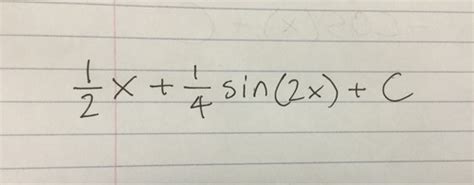 1/2 x + 1/4 sin(2x) + C